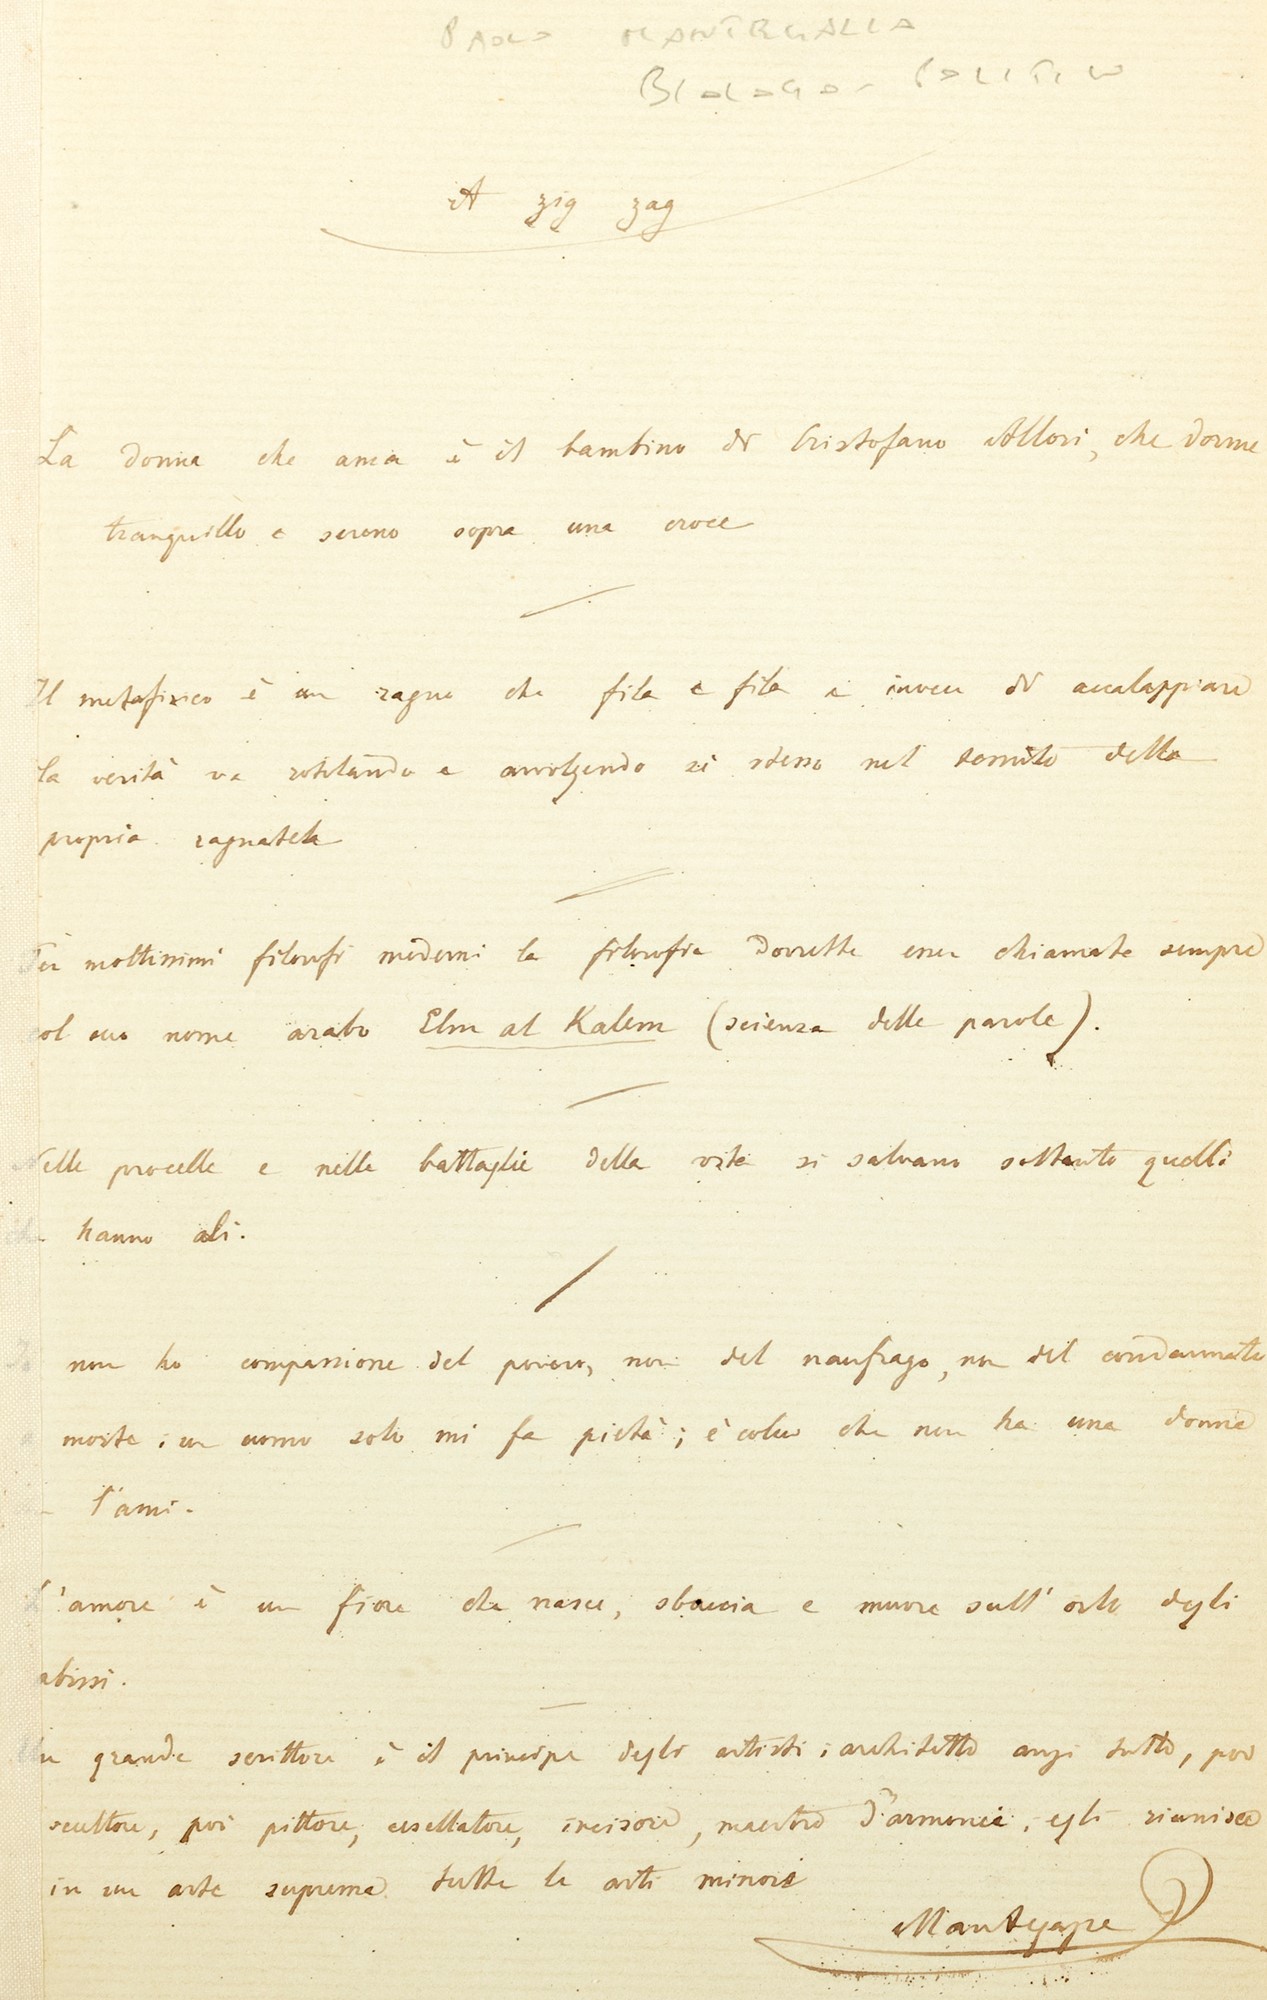 PAOLO MANTEGAZZA
BIOLOGO - POLITICO
A zig zag
La donna che ama è il bambino di Cristofano Allori, che dorme
tranquillo e sereno sopra una croce
Il metafisico è un ragno che fila e fila e invece di accalappiare
la verità va rotolando e avvolgendo sè stesso nel tessuto della
propria ragnatela
Per moltissimi filosofi moderni la filosofia dovrebbe esser chiamata sempre
col suo nome arabo Elm al Kalem (scienza delle parole).
Nelle procelle e nelle battaglie della vita si salvano soltanto quelli
che hanno ali.
Io non ho compassione del povero, non del naufrago, non del condannato
a morte; un uomo solo mi fa pietà; è colui che non ha una donna
l'ami.
L'amore è un fiore che nasce, sboccia e muore sull'orlo degli
abissi.
Un grande scrittore è il principe degli artisti; architetto anzi tutto, poi
scultore, poi pittore, cesellatore, incisore, maestro d'armonia; egli riunisce
in un arte suprema tutte le arti minori
Mantegazza